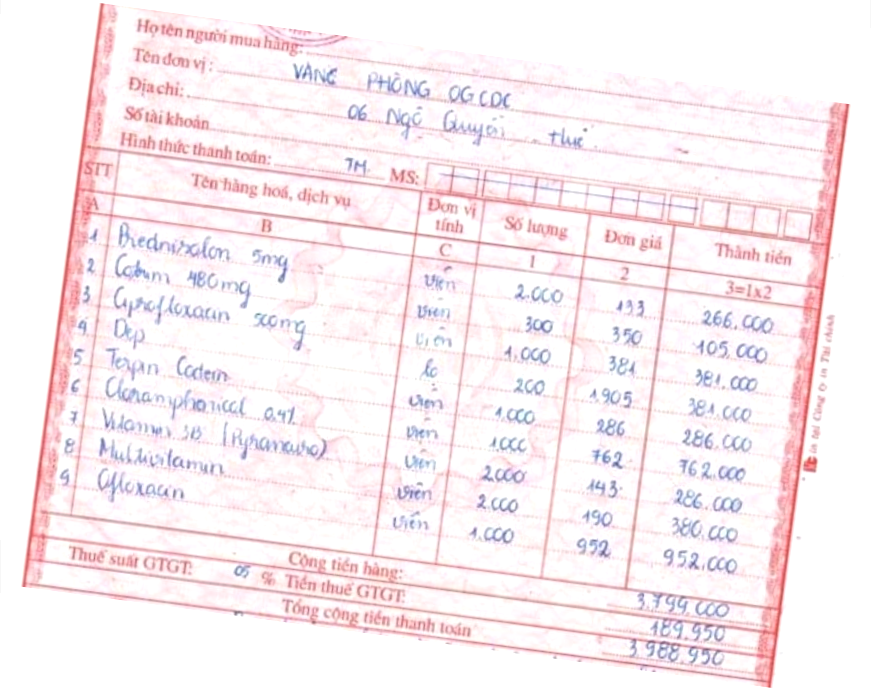 Họ tên người mua hàng:
Tên đơn vị: VĂNG PHÒNG OGCDC
Địa chỉ: 06 Ngô Quyền Huế
Số tài khoản
Hình thức thanh toán: TM. MS:
STT Tên hàng hoá, dịch vụ Đơn vị tính Số lượng Đơn giá Thành tiền
A B C 1 2 3=1x2
1 Prednisolon 5mg viên 2.000 133 266.000
2 Cotrim 480mg viên 300 350 105.000
3 Ciprofloxacin 500mg viên 1.000 381 381.000
4 Dep lo 200 1905 381.000
5 Terpin Codein viên 1.000 286 286.000
6 Cloramphenical 0.4% viên 1.000 762 762.000
7 Vitamin 3B viên 2000 143 286.000
8 Multivitamin viên 2.000 190 380.000
9 Ofloxacin viên 1.000 952 952.000
Cộng tiền hàng: 3.799.000
Thuế suất GTGT: 05 % Tiền thuế GTGT: 189.950
Tổng cộng tiền thanh toán 3.988.950
in tại Công ty in Tài chính